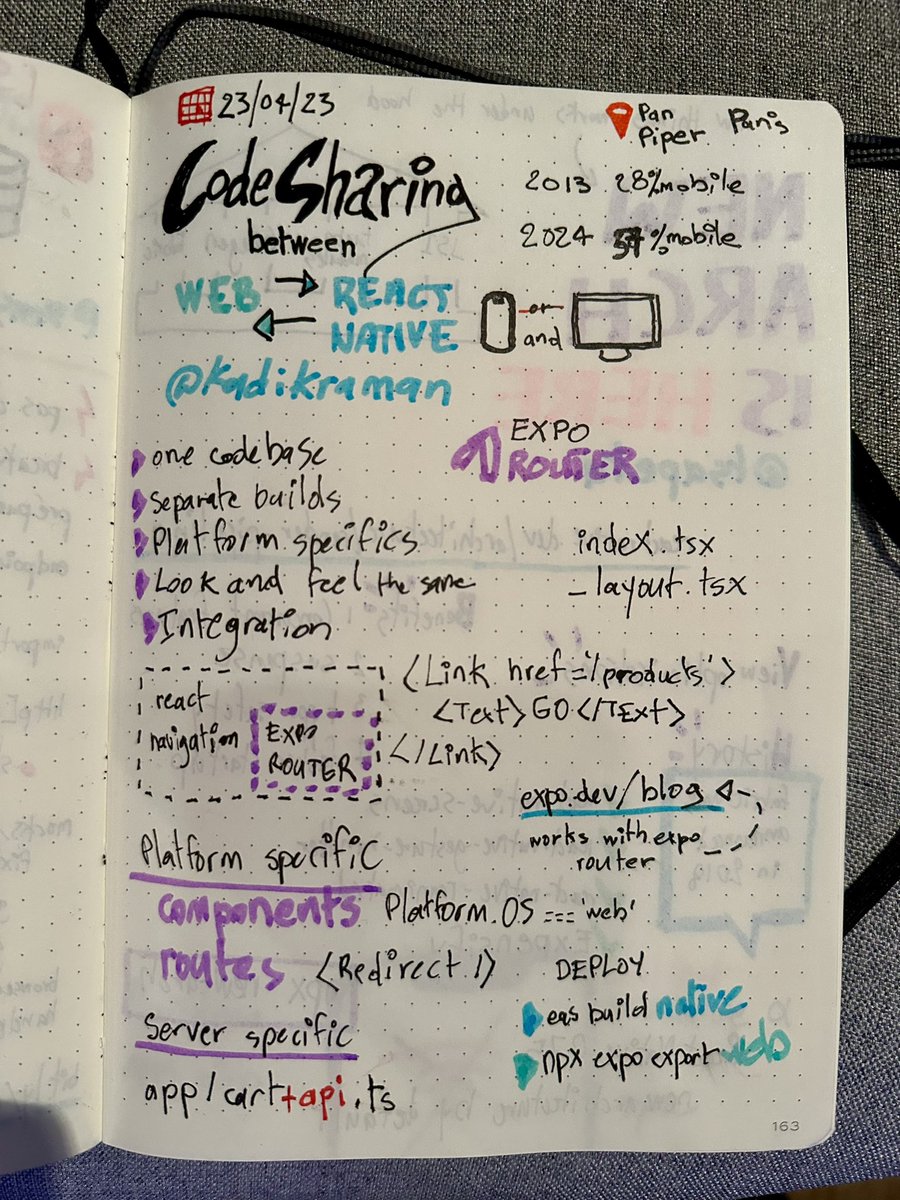 23/04/23
Pan
Piper Paris
Code Sharing
between
WEB
REACT
NATIVE
@kadikraman
2013 28% mobile
2024 57% mobile
or
and
one codebase
separate builds
Platform specifics
Look and feel the same
Integration
EXPO
ROUTER
index.tsx
_layout.tsx
react
navigation
EXPO
ROUTER
<Link href='/products'>
<Text> GO </TExt>
</Link>
expo.dev/blog
works with expo
router
Platform specific
components Platform.OS === 'web'
routes <Redirect />
Server specific
app/cart+api.ts
DEPLOY
eas build native
npx expo export web
163